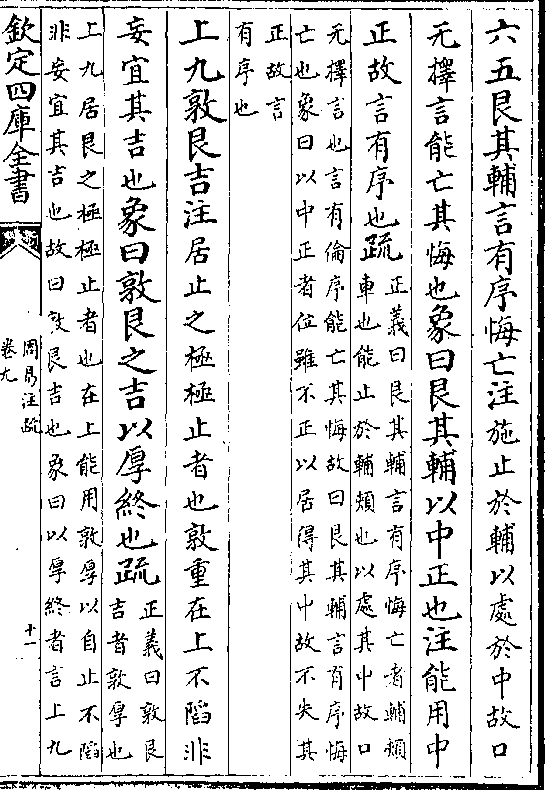 六五艮其輔言有序悔亡注施止於輔以處於中故口
无擇言能亡其悔也象曰艮其輔以中正也注能用中
正故言有序也疏
正義曰艮其輔言有序悔亡者輔頰
車也能止於輔頰也以處其中故口
无擇言也言有倫序能亡其悔故曰艮其輔言有序悔
亡也象曰以中正者位雖不正以居得其中故不失其
正故言
有序也
上九敦艮吉注居止之極極止者也敦重在上不陷非
妄宜其吉也象曰敦艮之吉以厚終也疏
正義曰敦艮
吉者敦厚也
上九居艮之極極止者也在上能用敦厚以自止不陷
非妄宜其吉也故曰敦艮吉也象曰以厚終者言上九
欽定四庫全書
周易注疏
卷九
十一